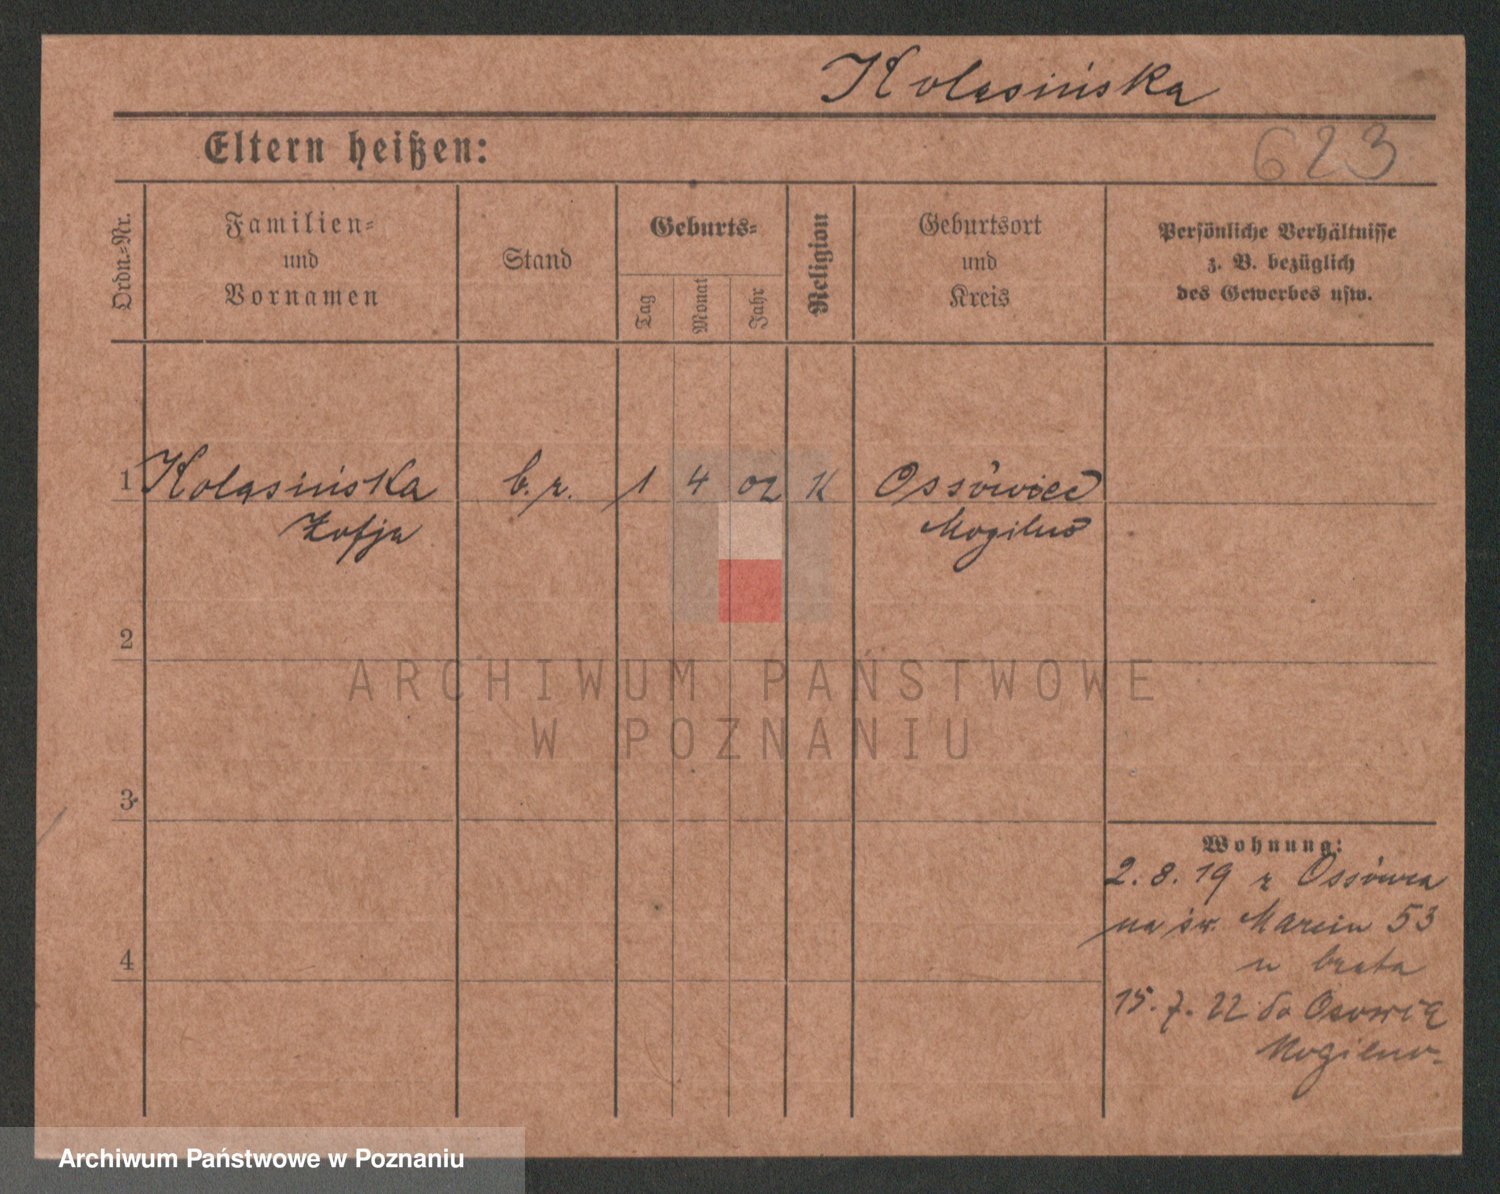 Kolasińska
Eltern heißen:
623
Ordn.=Nr.
Familien=
und
Vornamen
Stand
Geburts=
Tag
Monat
Jahr
Religion
Geburtsort
und
Kreis
Persönliche Verhältnisse
z. B. bezüglich
des Gewerbes usw.
1 Kolasińska b. z. 1 4 02 K Ossówiec
Zofja Mogilno
2
ARCHIWUM PAŃSTWOWE
W POZNANIU
3
Wohnung:
2. 8. 19 z Ossówca
na św. Marcin 53
4
u brata
15. 7. 22 do
Mogilno
Archiwum Państwowe w Poznaniu